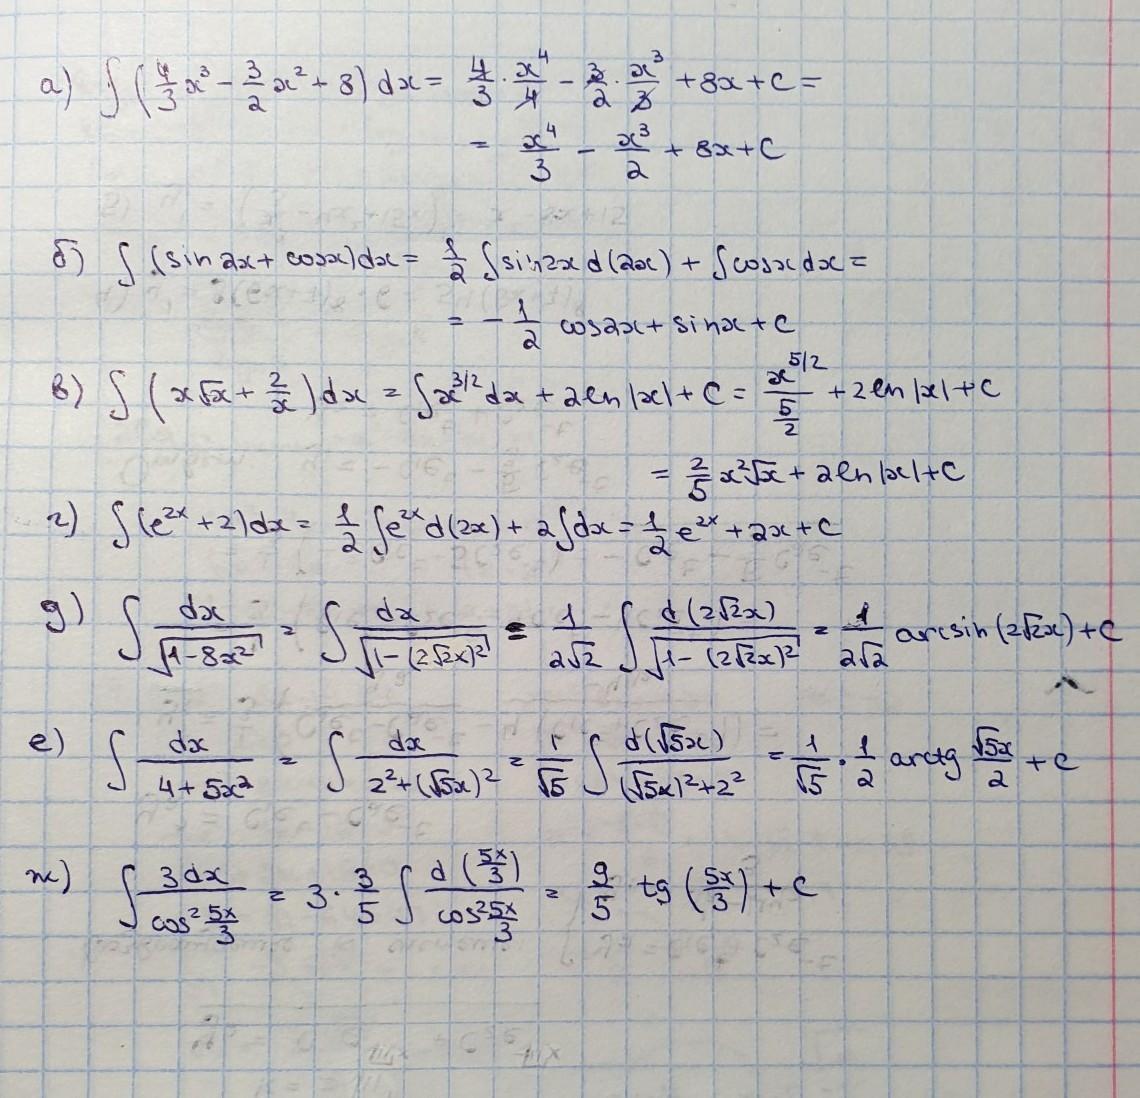 а) ∫(4/3 x³ - 3/2 x² + 8) dx = 4/3 · x⁴/4 - 3/2 · x³/3 + 8x + C =
= x⁴/3 - x³/2 + 8x + C
б) ∫(sin 2x + cosx)dx = 1/2 ∫sin2x d(2x) + ∫cosx dx =
= - 1/2 cos2x + sinx + C
в) ∫(x√x + 2/x)dx = ∫x^(3/2) dx + 2ln|x| + C = x^(5/2)/(5/2) + 2ln|x| + C
= 2/5 x²√x + 2ln|x| + C
г) ∫(e^(2x) + 2)dx = 1/2 ∫e^(2x) d(2x) + 2∫dx = 1/2 e^(2x) + 2x + C
д) ∫ dx/√(1-8x²) = ∫ dx/√(1-(2√2x)²) = 1/(2√2) ∫ d(2√2x)/√(1-(2√2x)²) = 1/(2√2) arcsin(2√2x) + C
е) ∫ dx/(4+5x²) = ∫ dx/(2²+(√5x)²) = 1/√5 ∫ d(√5x)/((√5x)²+2²) = 1/√5 · 1/2 arctg √5x/2 + C
ж) ∫ 3dx/(cos² 5x/3) = 3 · 3/5 ∫ d(5x/3)/(cos² 5x/3) = 9/5 tg(5x/3) + C